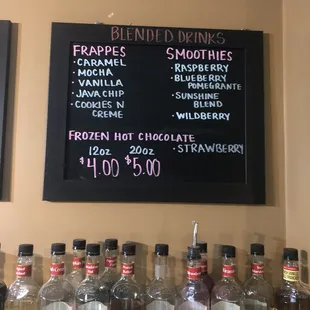 BLENDED DRINKS
FRAPPES
· CARAMEL
· MOCHA
· VANILLA
· JAVA CHIP
· COOKIES N
CREME
SMOOTHIES
· RASPBERRY
· BLUEBERRY
POMEGRANTE
· SUNSHINE
BLEND
· WILDBERRY
· STRAWBERRY
FROZEN HOT CHOCOLATE
12oz 20oz
$4.00 $5.00